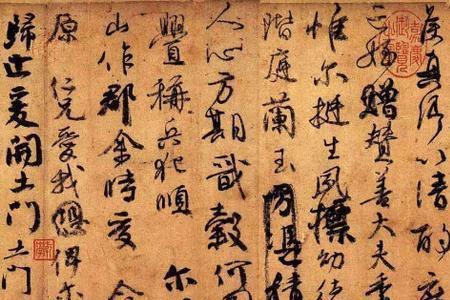 侯真卿以清酌庶
亡姪贈贊善大夫季
惟爾挺生夙標幼德
階庭蘭玉方憑積
人心方期戩穀何
釁稱兵犯順 爾
山作郡余時受 命
原 仁兄愛我 俾爾
歸止爰開土門 土門